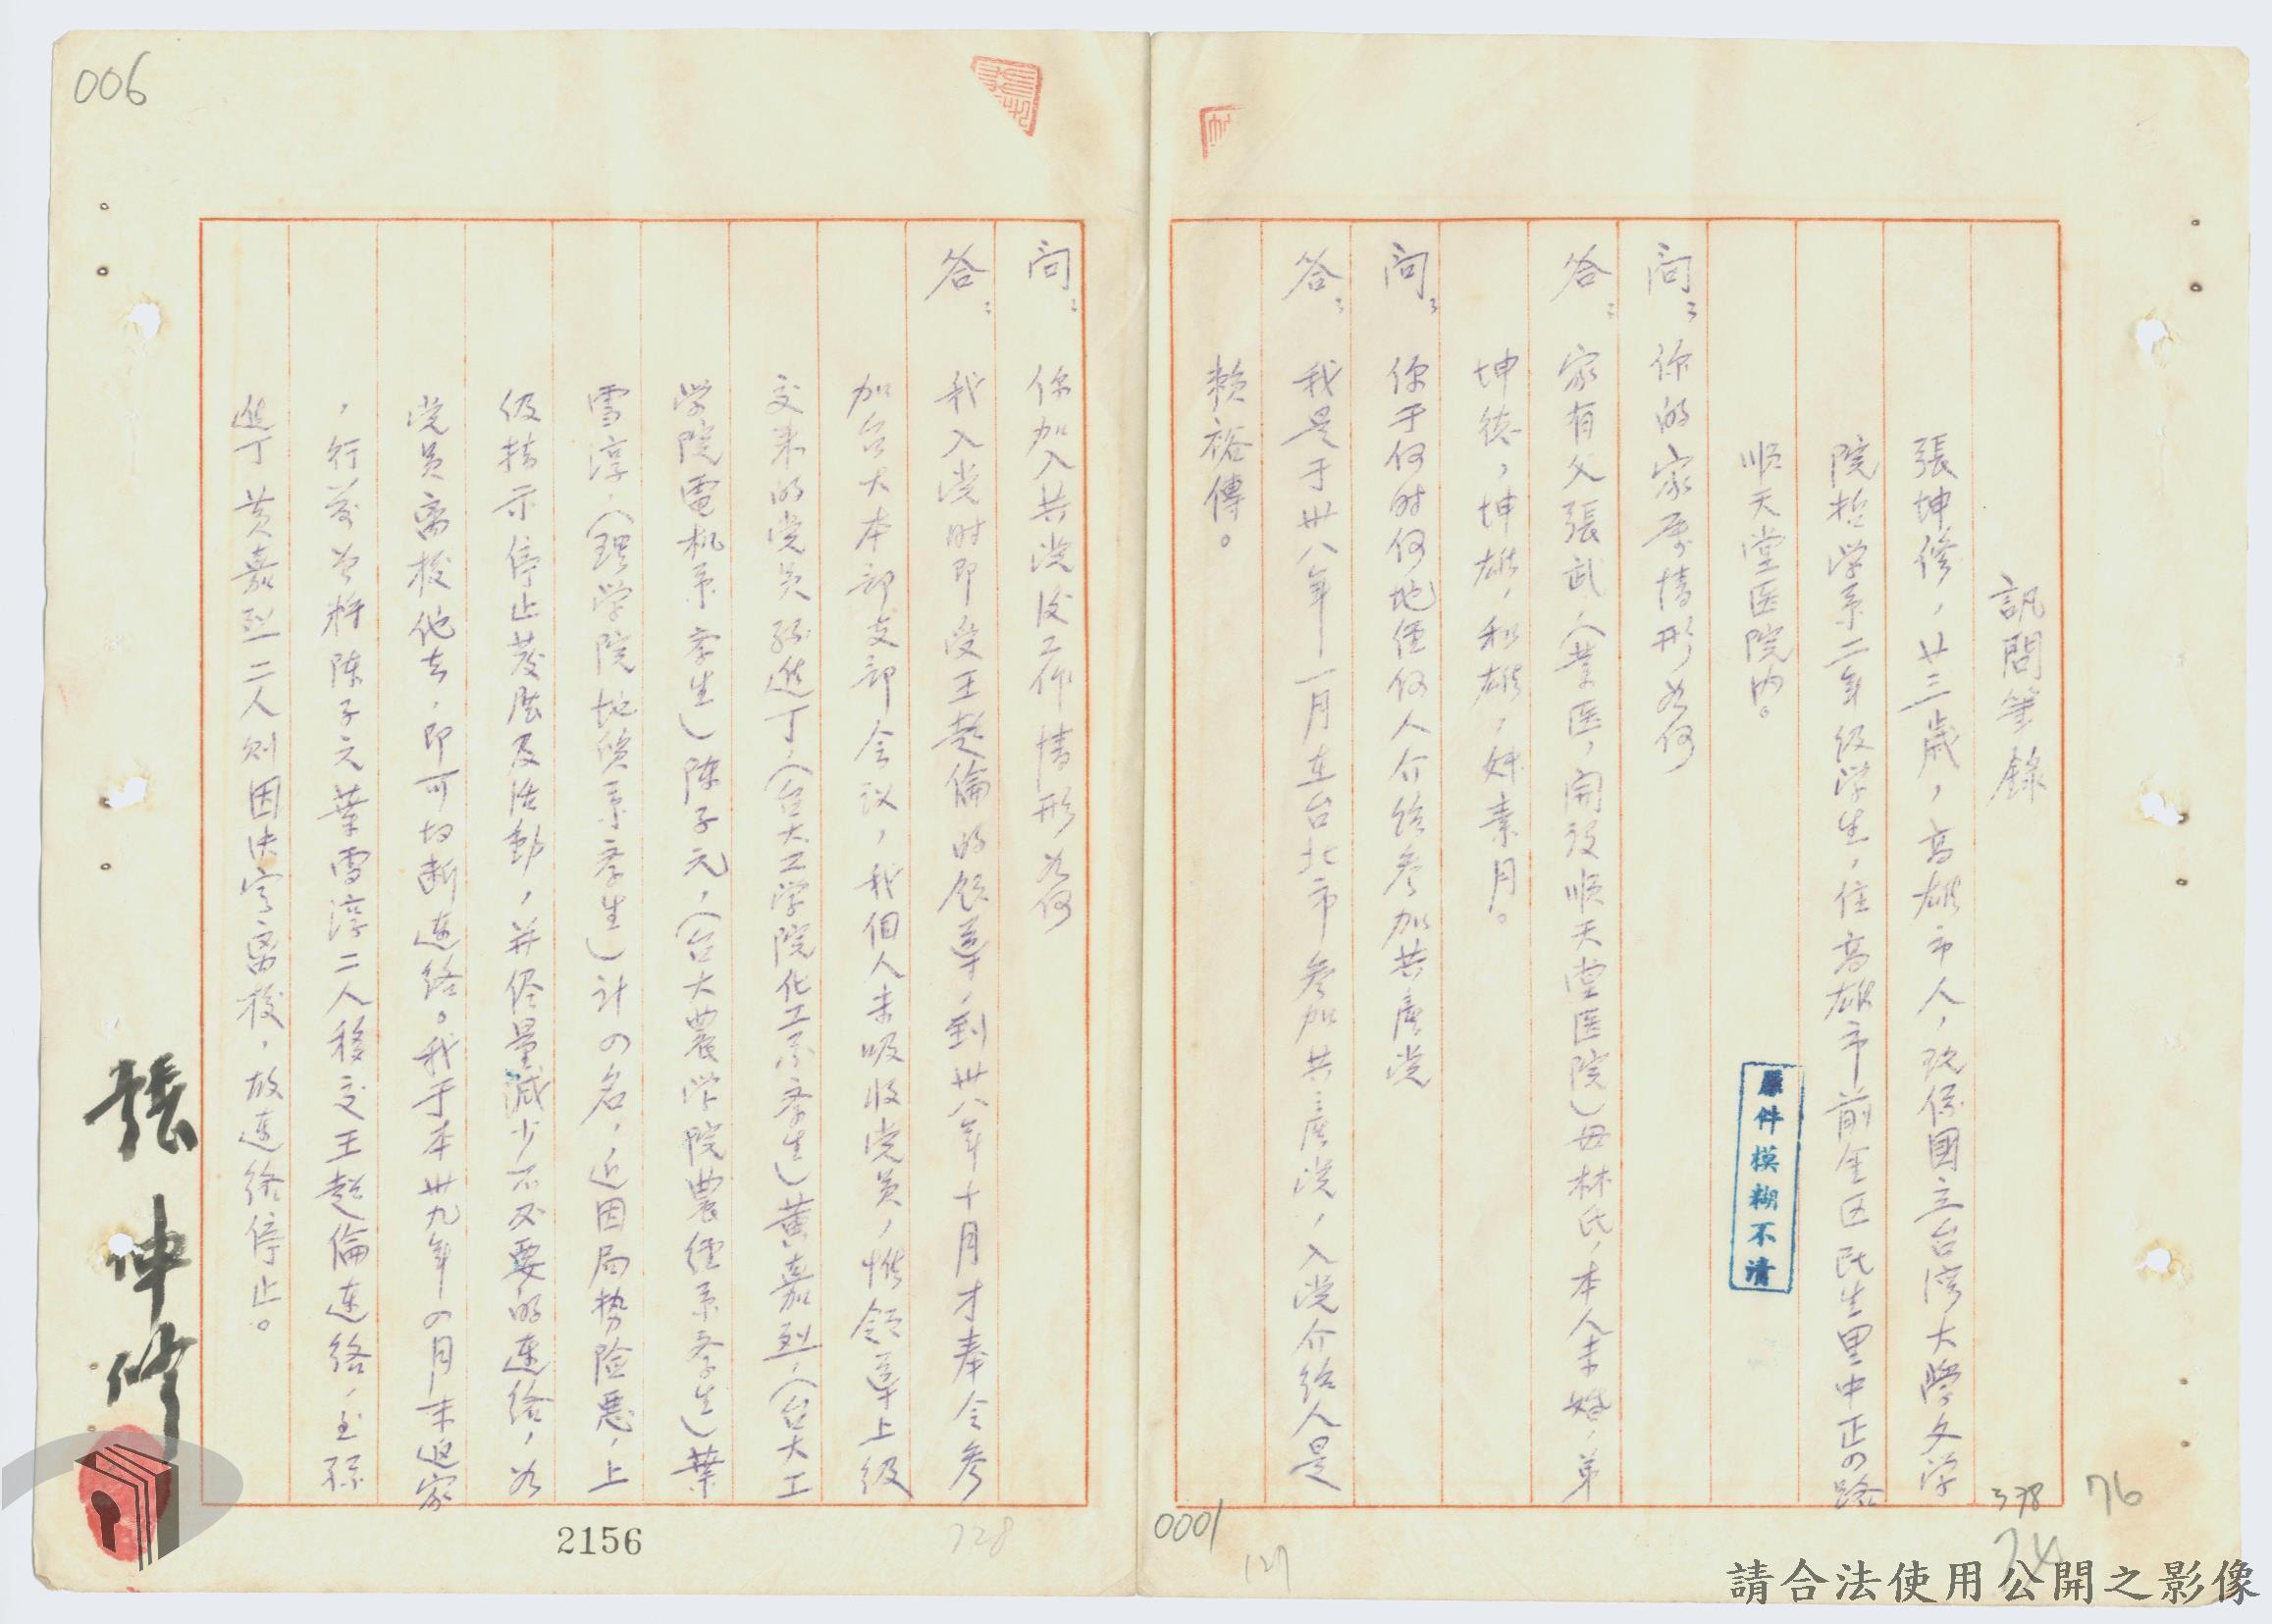 訊問筆錄
張坤修，廿三歲，高雄市人，现係國立台湾大學文学
院哲学系二年级学生，住高雄市前金区民生里中正の路
順天堂医院内。
问：你的家庭情形为何
答：家有父張武，（業医，開设順天堂医院）母林氏，本人未婚，弟
坤德，坤雄，和雄，妹素月。
问：你于何时何地经何人介绍参加共產党
答：我是于卅八年一月在台北市参加共產党，入党介绍人是
賴裕傳。
问：你加入共党後工作情形为何
答：我入党时即受王超倫的领導，到卅八年十月才奉令参
加台大本部支部会议，我個人未吸收党员，惟领導上级
交来的党员孫進丁，（台大工学院化工系孝生）黄嘉烈，（台大工
学院電机系孝生）陳子元，（台大農学院農经系孝生）葉
雪淳，（理学院地质系孝生）计の名，近因局势险惡，上
级指示停止發展及活動，并侭量减少不必要的連络，为
党员离校他去，即可切断連络。我于本卅九年の月末返家
，行前曾将陳子元葉雪淳二人移交王超倫連络，至孫
進丁黄嘉烈二人则因决定离校，故連络停止。
張坤修
原件模糊不清
006
0001
127
728
2156
338
76
74
請合法使用公開之影像